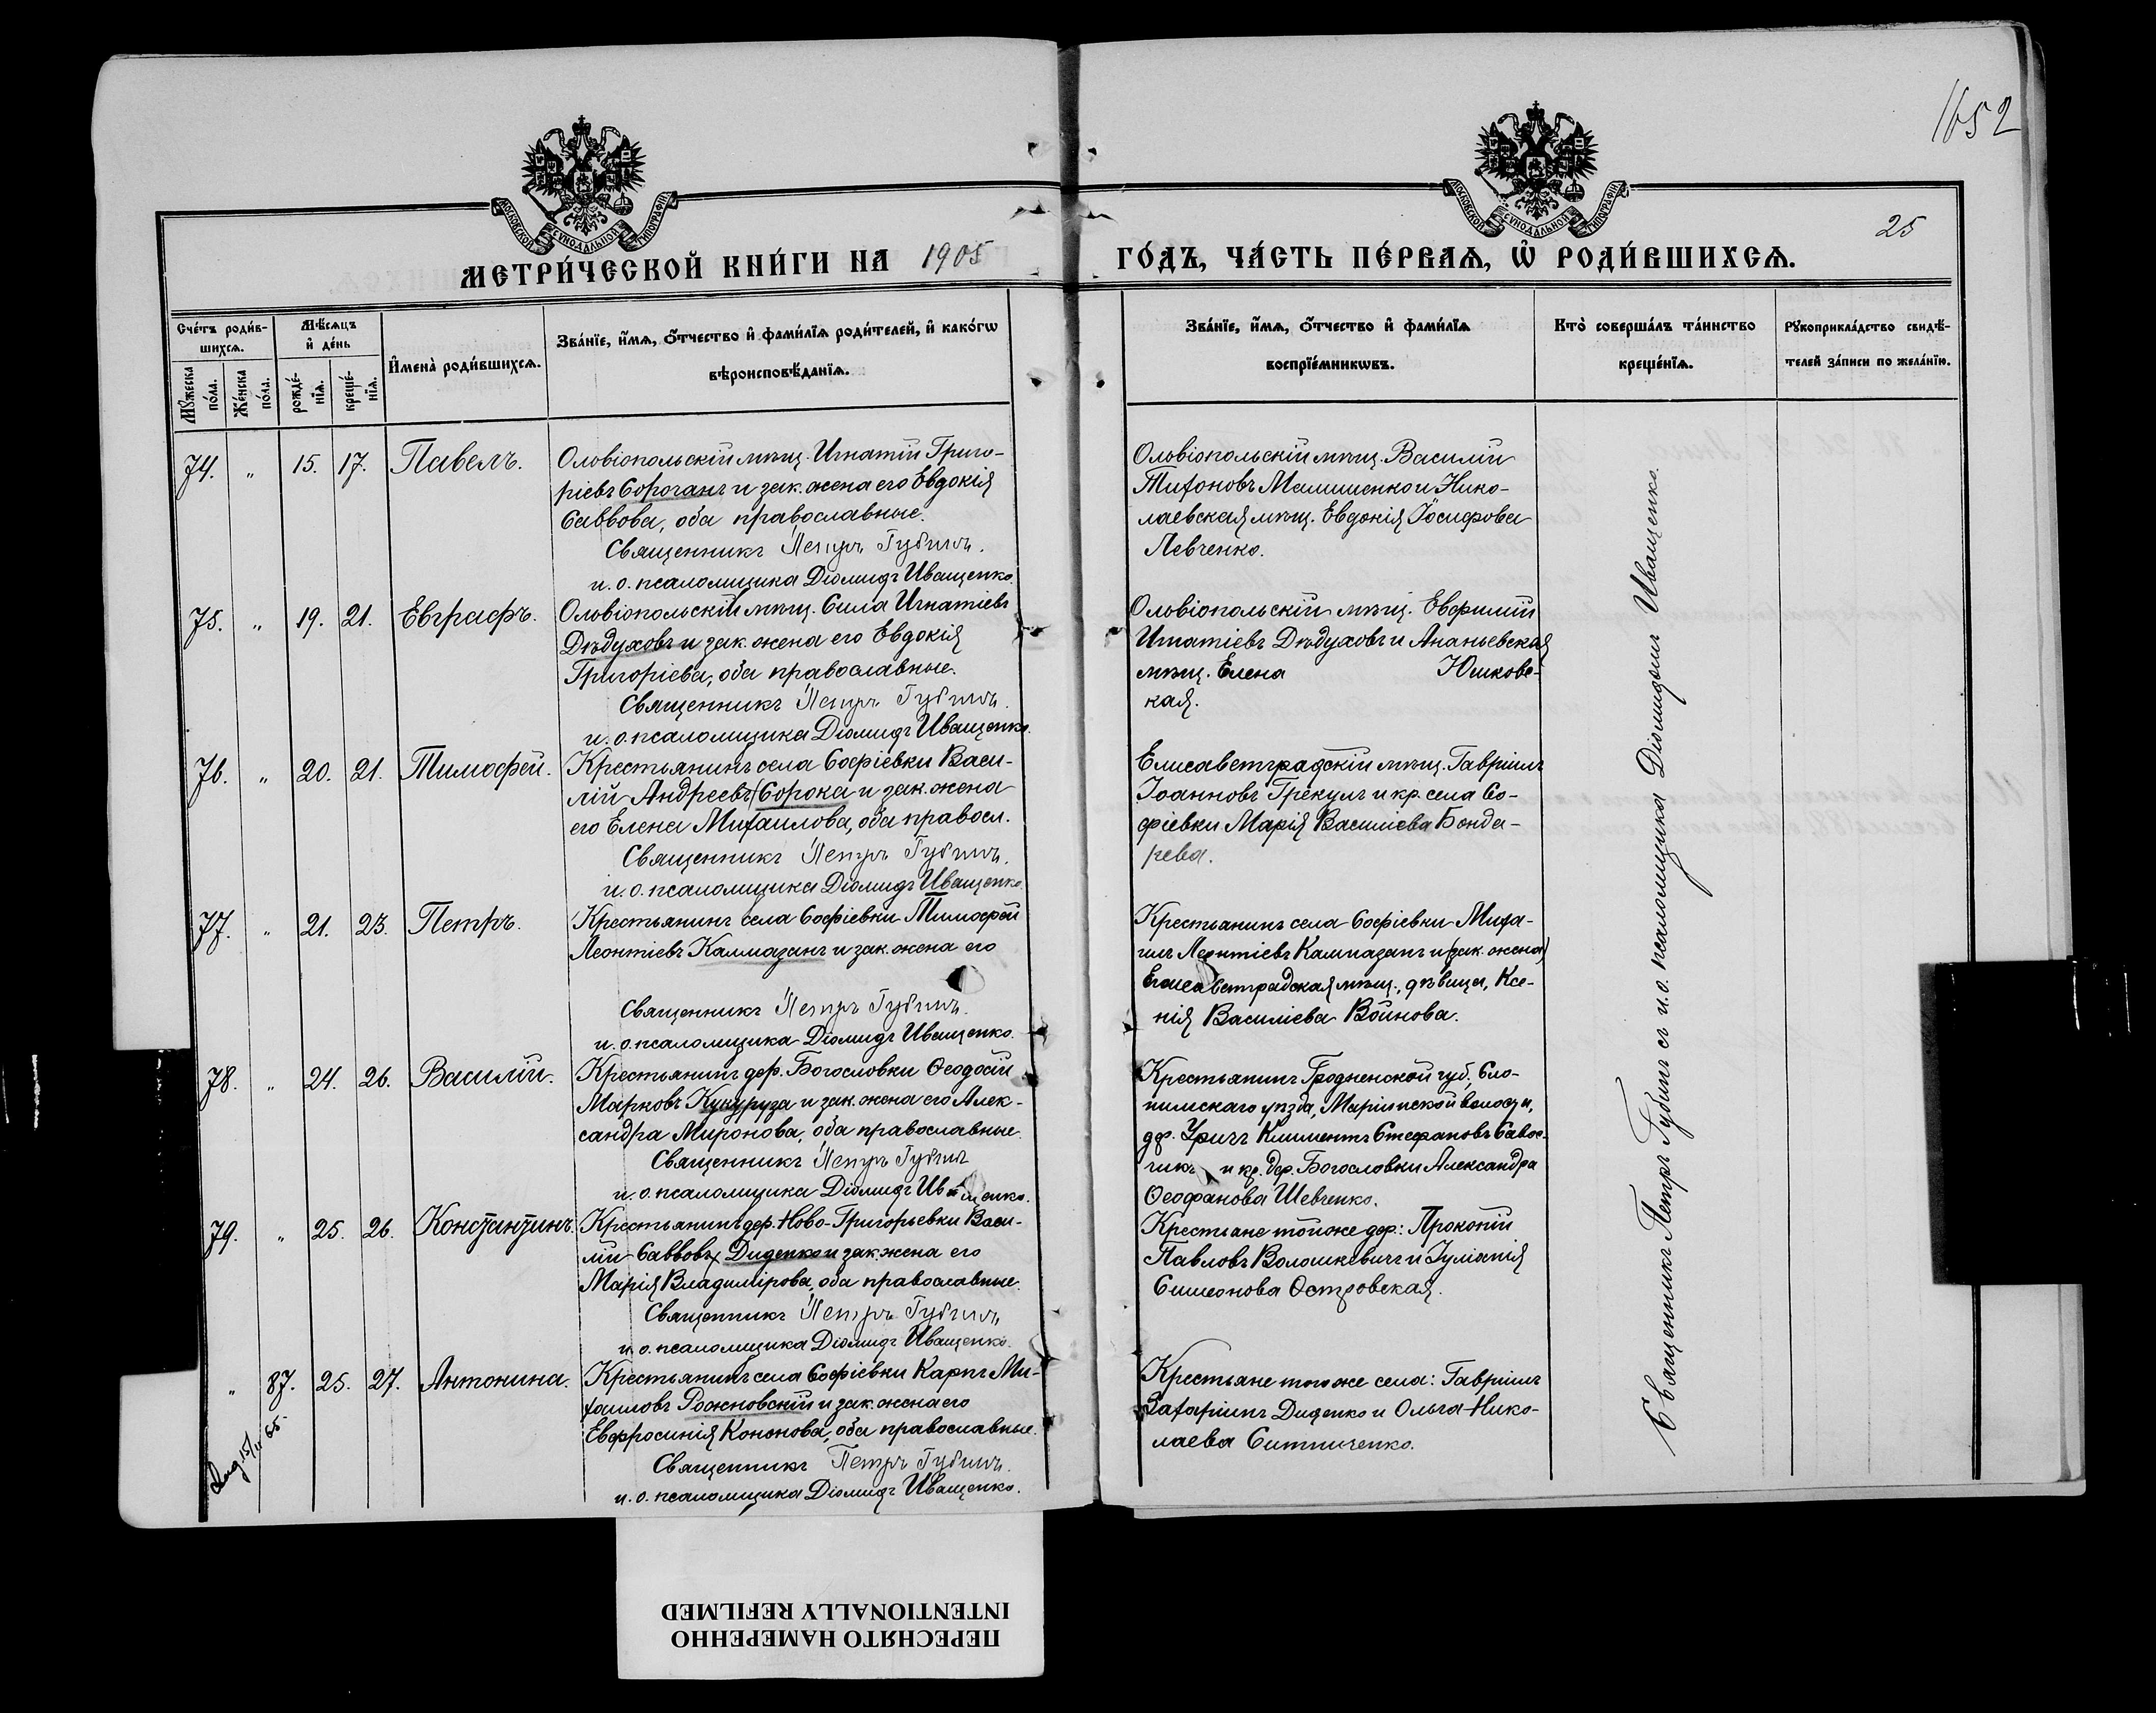 1652
25
МОСКОВСКОЙ СѴНОДАЛЬНОЙ ТИПОГРАФІИ
МОСКОВСКОЙ СѴНОДАЛЬНОЙ ТИПОГРАФІИ
МЕТРИ́ЧЕСКОЙ КНИ́ГИ НА 1905 ГО́ДЪ, ЧА́СТЬ ПЕ́РВАѦ, Ѡ҆ РОДИ́ВШИХСѦ.
Сче́тъ роди́в-
шихсѧ.
Мꙋ́жеска
по́ла.
Же́нска
по́ла.
Мѣ́сѧцъ
и҆ де́нь
рожде́-
нїѧ.
креще́-
нїѧ.
И҆мена̀ роди́вшихсѧ.
Зва́нїе, и҆́мѧ, ѻ҆́тчество и҆ фами́лїѧ роди́телей, и҆ како́гѡ
вѣроисповѣ́данїѧ.
Зва́нїе, и҆́мѧ, ѻ҆́тчество и҆ фами́лїѧ
воспрїе́мникѡвъ.
Кто̀ соверша́лъ та́инство
креще́нїѧ.
Рꙋкоприкла́дство свидѣ́-
телей за́писи по жела́нїю.
74. " 15. 17. Павелъ.
Оловіопольскій мѣщ. Игнатій Григо-
ріевъ Сорочанъ и зак. жена его Евдокія
Саввова, оба православные.
Священникъ Петръ Губинъ.
и. о. псаломщика Діомидъ Иващенко.
Оловіопольскій мѣщ. Василій
Тихоновъ Малишенко и Нико-
лаевская мѣщ. Евдокія Іосифова
Левченко.
75. " 19. 21. Евграфъ.
Оловіопольскій мѣщ. Сила Игнатіевъ
Дѣдуховъ и зак. жена его Евдокія
Григоріева, оба православные.
Священникъ Петръ Губинъ.
и. о. псаломщика Діомидъ Иващенко.
Оловіопольскій мѣщ. Евфимій
Игнатіевъ Дѣдуховъ и Ананьевская
мѣщ. Елена Юшковс-
кая.
76. " 20. 21. Тимофей.
Крестьянинъ села Софіевки Васи-
лій Андреевъ Сорока и зак. жена
его Елена Михаилова, оба правосл.
Священникъ Петръ Губинъ.
и. о. псаломщика Діомидъ Иващенко.
Елисаветградскій мѣщ. Гавріилъ
Іоанновъ Грекулъ и кр. села Со-
фіевки Марія Василіева Бонда-
рева.
77. " 21. 23. Петръ.
Крестьянинъ села Софіевки Тимофей
Леонтіевъ Калмазанъ и зак. жена его
Священникъ Петръ Губинъ.
и. о. псаломщика Діомидъ Иващенко.
Крестьянинъ села Софіевки Миха-
илъ Леонтіевъ Калмазанъ и (зак. жена)
Елисаветградская мѣщ., дѣвица, Ксе-
нія Василіева Войнова.
78. " 24. 26. Василій.
Крестьянинъ дер. Богословки Ѳеодосій
Марковъ Кукуруза и зак. жена его Алек-
сандра Миронова, оба православные.
Священникъ Петръ Губинъ
и. о. псаломщика Діомидъ Иващенко.
Крестьянинъ Гродненской губ., Сло-
нимскаго уѣзда, Маріинской волости,
дер. Климентъ Стефановъ
и кр. дер. Богословки Александра
Ѳеофанова Шевченко.
79. " 25. 26. Константинъ.
Крестьянинъ дер. Ново-Григорьевки Васи-
лій Саввовъ Диденко и зак. жена его
Марія Владимірова, оба православные.
Священникъ Петръ Губинъ
и. о. псаломщика Діомидъ Иващенко.
Крестьяне той же дер.: Прокопій
Павловъ Волошкевичъ и Іуліанія
Симеонова Островская.
" 87. 25. 27. Антонина.
Крестьянинъ села Софіевки Карпъ Ми-
хаиловъ Рожновскій и зак. жена его
Евфросинія Кононова, оба православные.
Священникъ Петръ Губинъ.
и. о. псаломщика Діомидъ Иващенко.
Крестьяне того же села: Гавріилъ
Захаріинъ Диденко и Ольга Нико-
лаева Ситниченко.
Священникъ Петръ Губинъ съ и. о. псаломщика Діомидомъ Иващенко.
ПЕРЕСНЯТО НАМЕРЕННО
INTENTIONALLY REFILMED